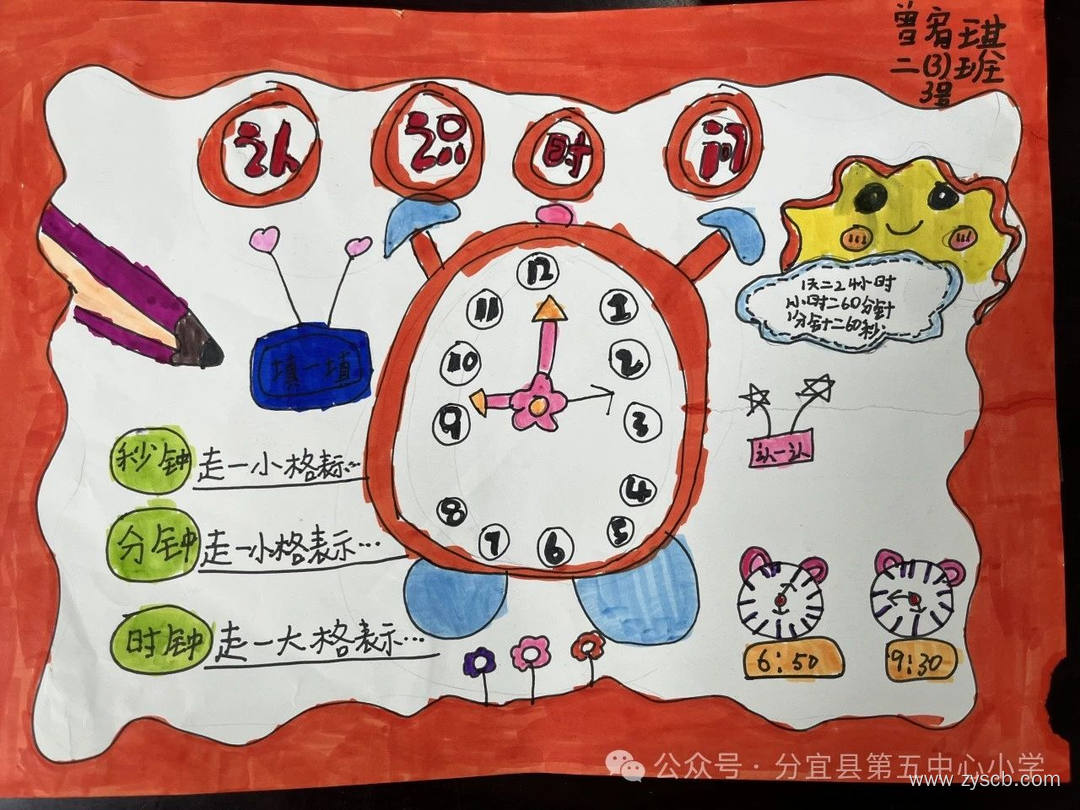 曾宥琪
二(3)班
3号
认识时间
12
11
1
10
2
9
3
8
4
7
5
6
1天=24小时
1小时=60分针
1分针=60秒
填一填
认一认
秒钟走一小格表示…
分钟走一小格表示…
时钟走一大格表示…
6:50
9:30
公众号·分宜县第五中心小学
www.zyscb.com